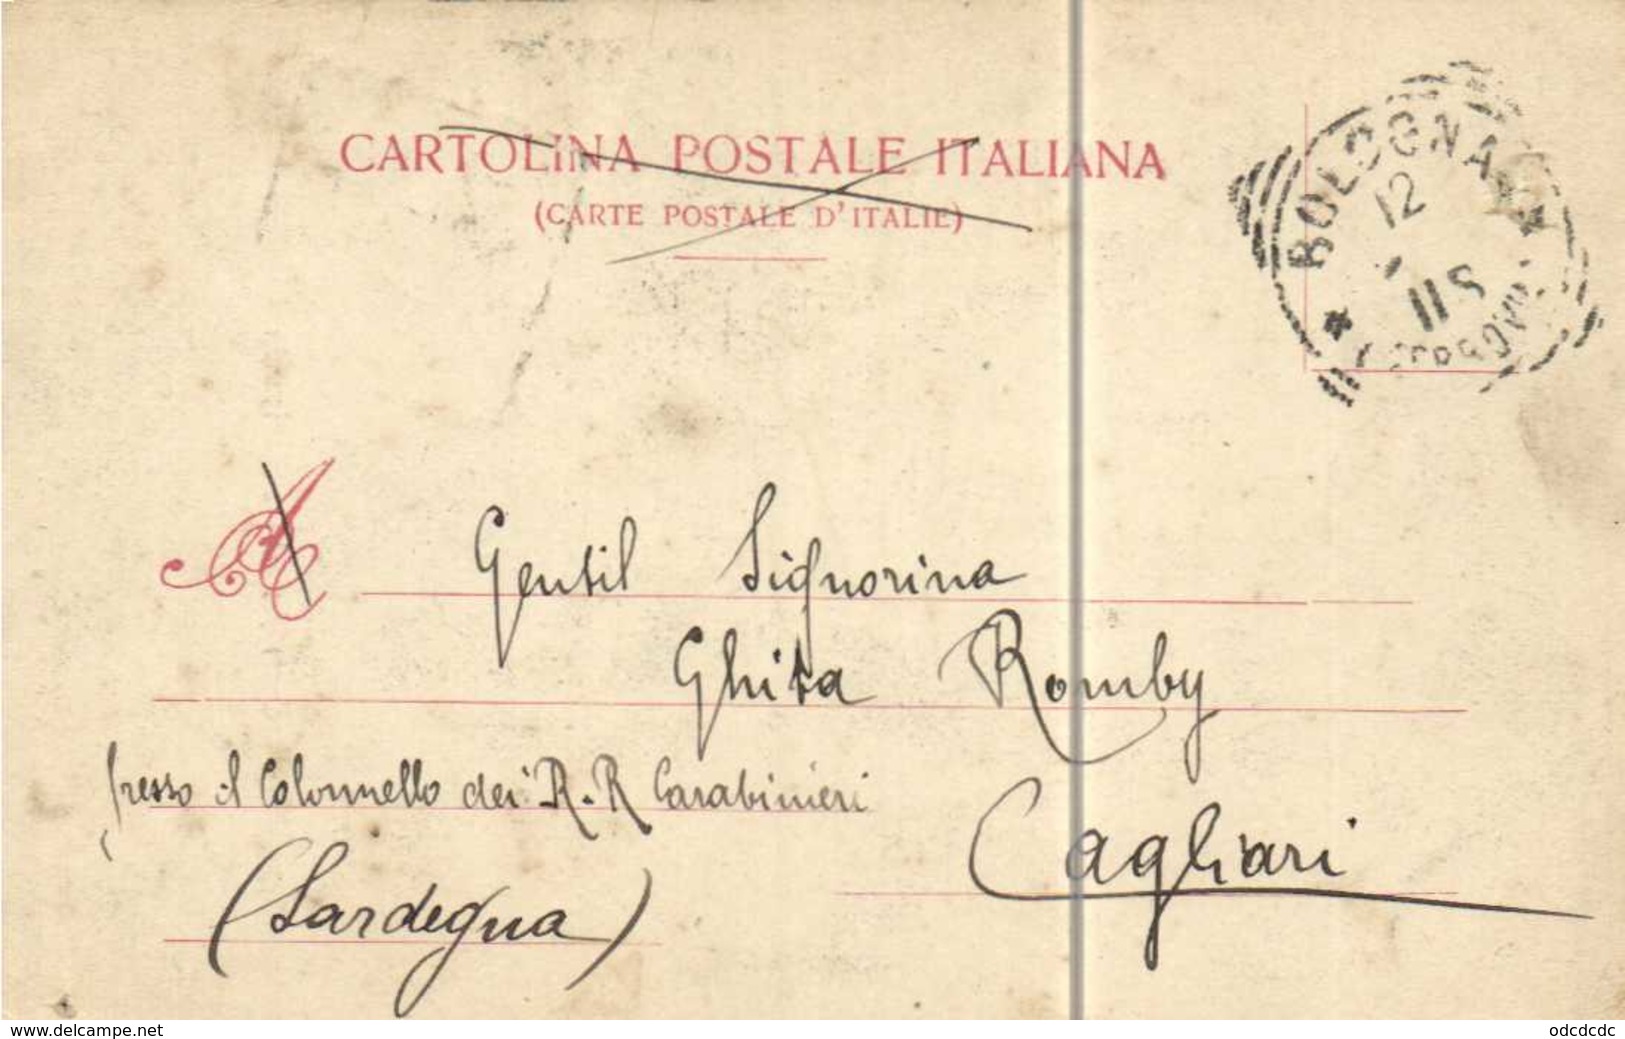 CARTOLINA POSTALE ITALIANA
(CARTE POSTALE D'ITALIE)
BOLOGNA
12
11 S
A
Gentil Signorina
Ghita Romby
presso il Colonnello dei R.R Carabinieri
Cagliari
(Sardegna)
www.delcampe.net
odcdcdc